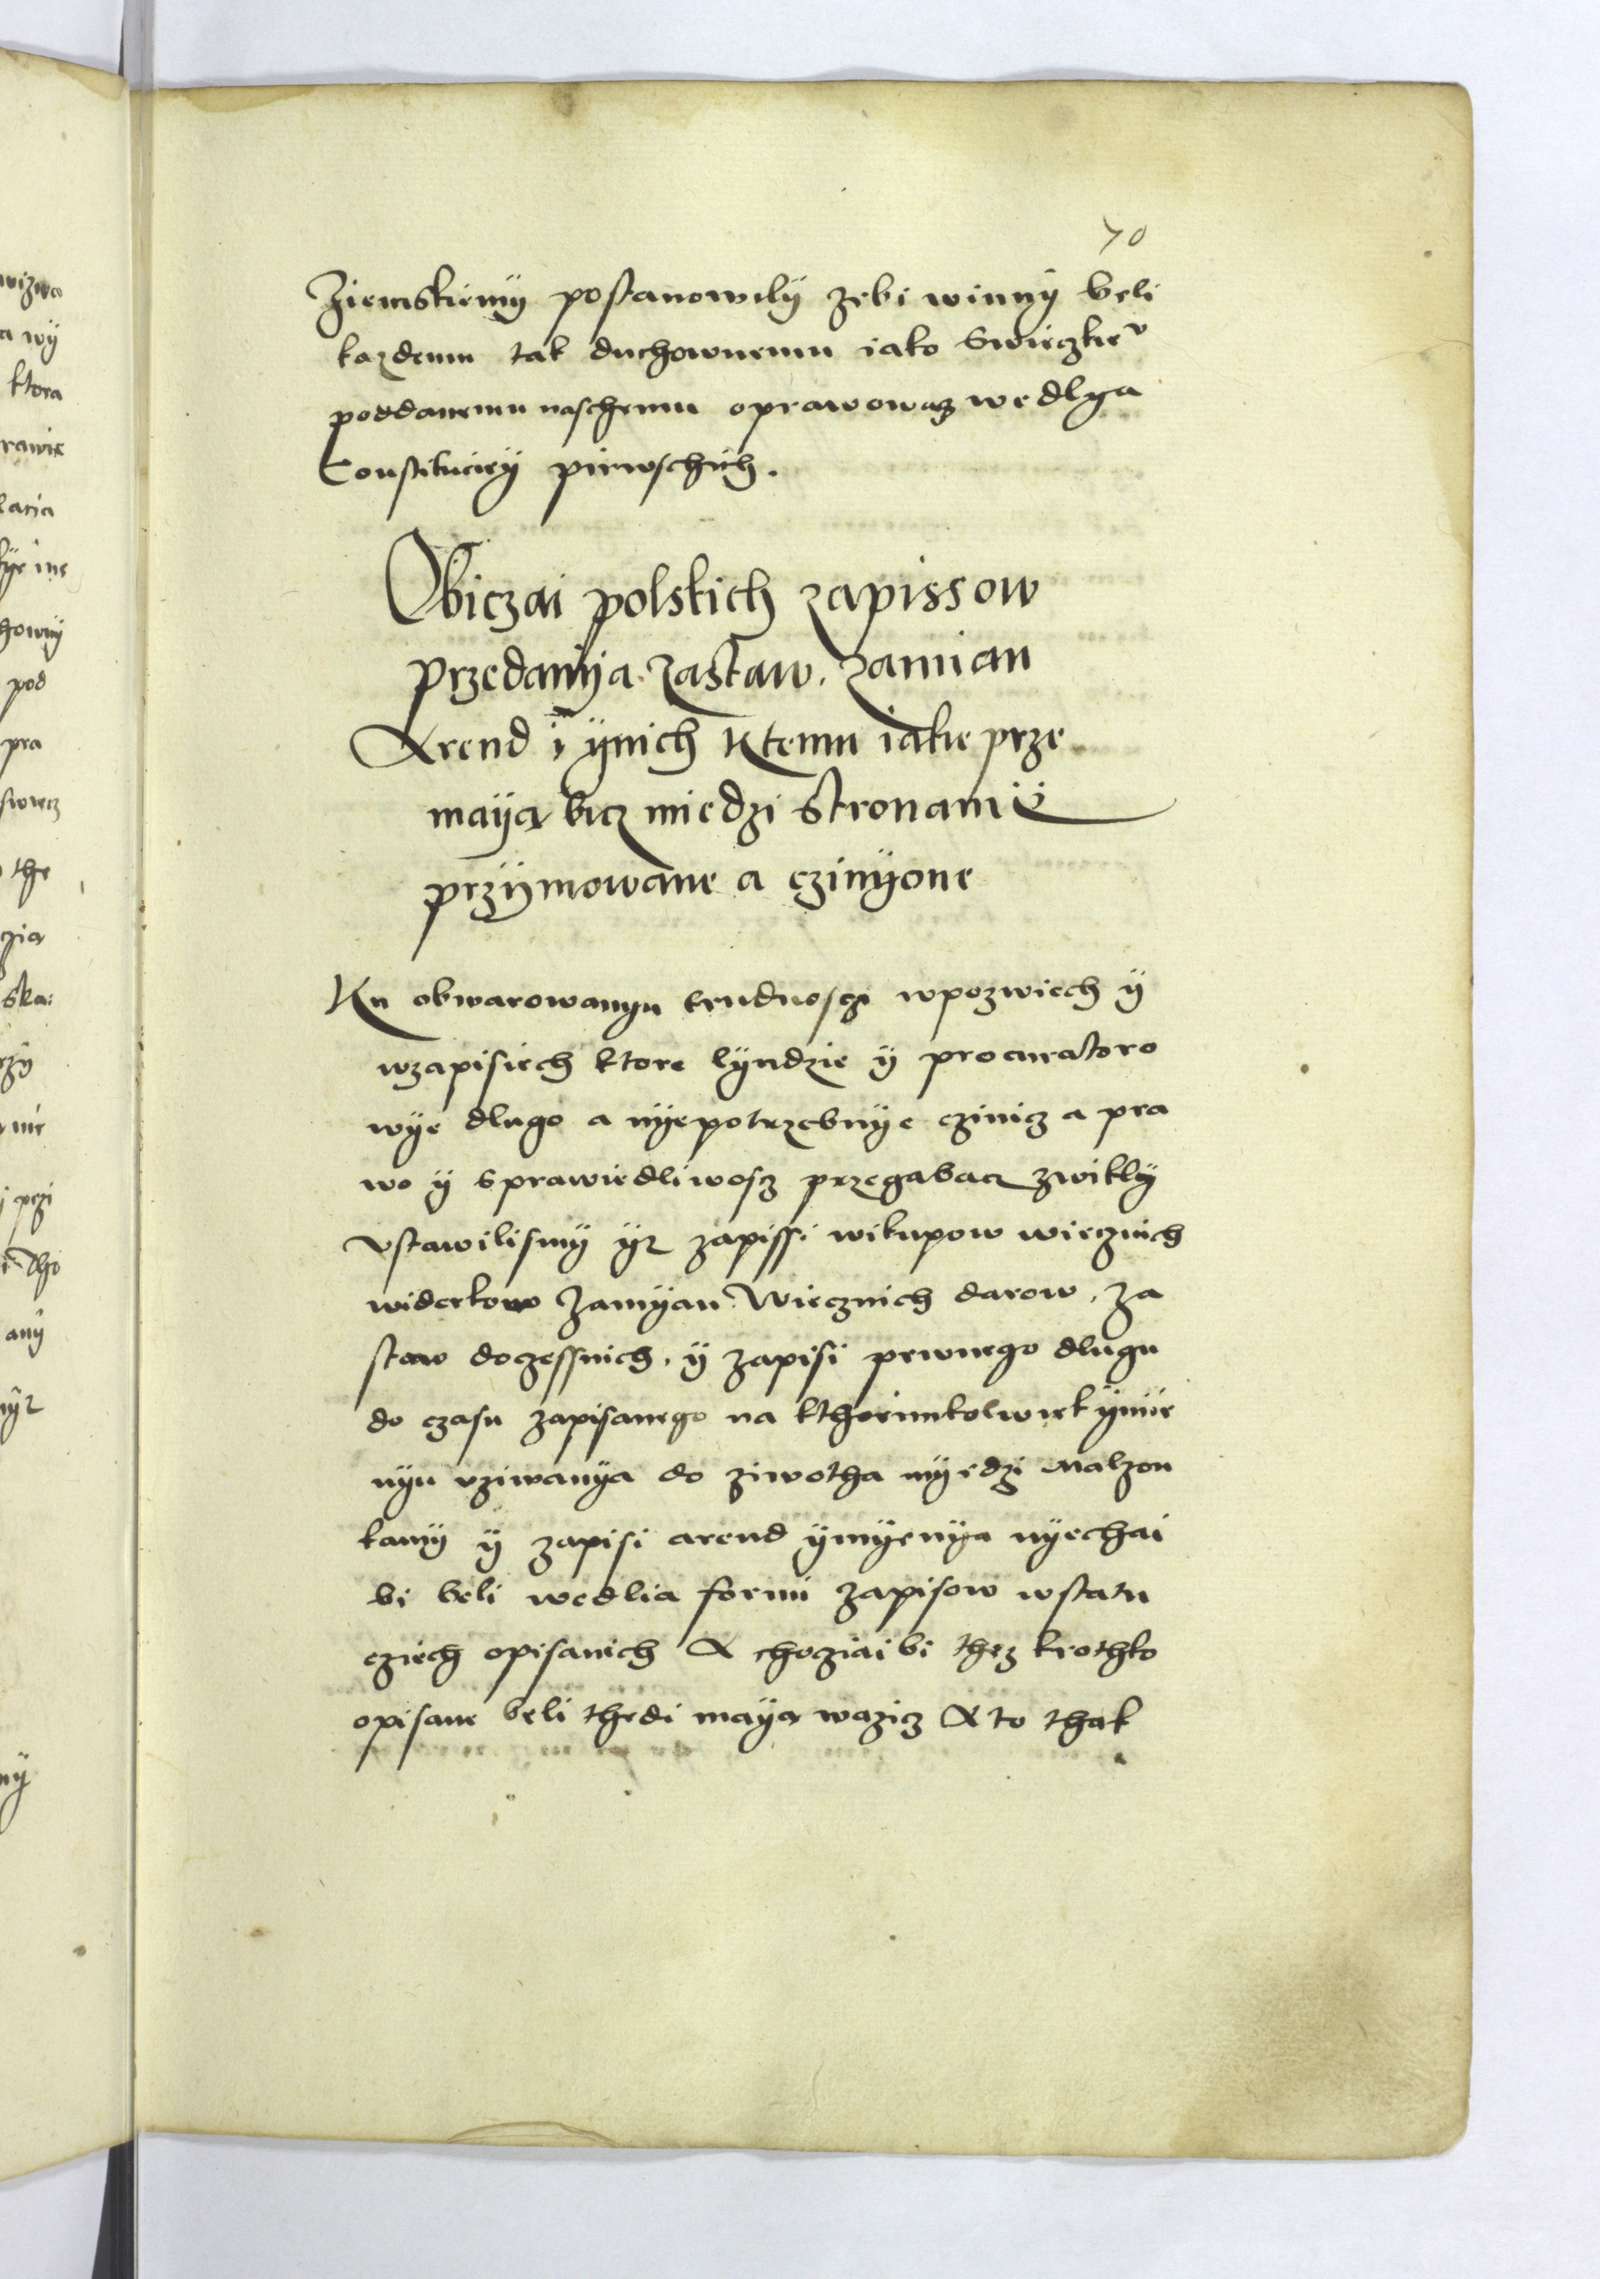 70
Ziemskiemy postanowily zebi winny beli
kazdemu tak duchownemu iako Swieczkie v
poddanemu naschemu oprawowacz wedlga
Constituciey pirwschich.
Obiczai polskich zapissow
przedanya. zastaw. zamian
Arend i ynich Ktemu iakie prze
maya bicz miedzi stronamÿ
przÿmowane a czinyone
Ku obwarowanyu trudnosczi wpozwiech ÿ
wzapisiech ktore lyudzie ÿ procuratoro
wye dlugo a nyepotrzebnye czinicz a pra
wo ÿ sprawiedliwoscz przegabacz zwikly
vstawilismÿ yz zapissi wikupow wiecznich
widerkow Zamyan Wiecznich darow. Za
staw doczessnich. ÿ zapisi pewnego dlugu
do czasu zapisanego na kthorimkolwiek ymie
nyu vziwanya do ziwotha myedzi malzon
kamy ÿ zapisi arend ymyenya nyechai
bi beli wedlia formi zapisow wstatu
cziech opisanich A choziai bi thez krothko
opisane beli thedi maya wazicz A to thak